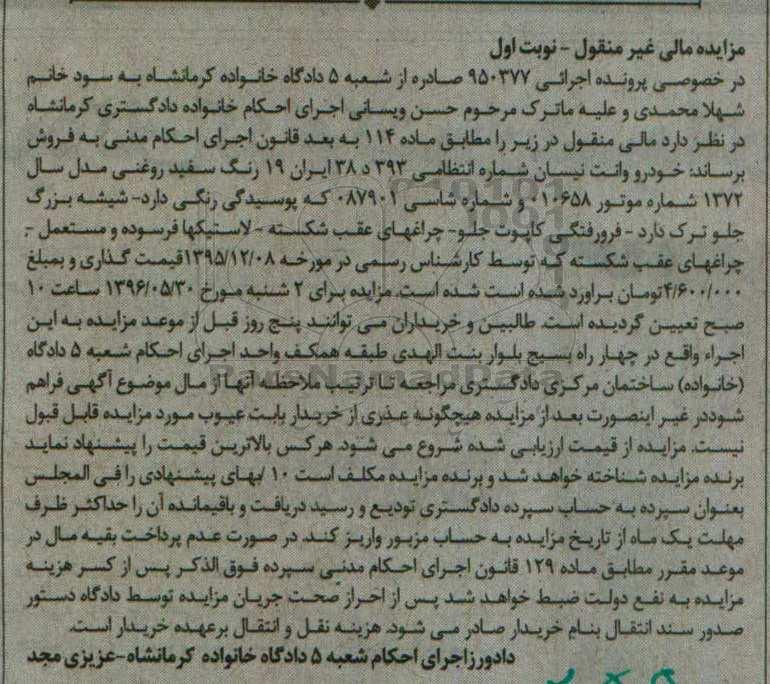 مزایده مالی غیر منقول - نوبت اول
در خصوصی پرونده اجرائی ۹۵۰۳۷۷ صادره از شعبه ۵ دادگاه خانواده کرمانشاه به سود خانم
شهلا محمدی و علیه ماترک مرحوم حسن ویسانی اجرای احکام خانواده دادگستری کرمانشاه
در نظر دارد مالی منقول در زیر را مطابق ماده ۱۱۴ به بعد قانون اجرای احکام مدنی به فروش
برساند: خودرو وانت نیسان شماره انتظامی ۳۹۳ د ۳۸ ایران ۱۹ رنگ سفید روغنی مدل سال
۱۳۷۲ شماره موتور ۰۱۰۶۵۸ و شماره شاسی ۰۸۷۹۰۱ که پوسیدگی رنگی دارد- شیشه بزرگ
جلو ترک دارد - فرورفتگی کاپوت جلو- چراغهای عقب شکسته - لاستیکها فرسوده و مستعمل -
چراغهای عقب شکسته که توسط کارشناس رسمی در مورخه ۱۳۹۵/۱۲/۰۸قیمت گذاری و بمبلغ
۴/۶۰۰/۰۰۰تومان براورد شده است شده است. مزایده برای ۲ شنبه مورخ ۱۳۹۶/۰۵/۳۰ ساعت ۱۰
صبح تعیین گردیده است. طالبین و خریداران می توانند پنج روز قبل از موعد مزایده به این
اجراء واقع در چهار راه بسیج بلوار بنت الهدی طبقه همکف واحد اجرای احکام شعبه ۵ دادگاه
(خانواده) ساختمان مرکزی دادگستری مراجعه تا ترتیب ملاحظه آنها از مال موضوع آگهی فراهم
شوددر غیر اینصورت بعد از مزایده هیچگونه عذری از خریدار بابت عیوب مورد مزایده قابل قبول
نیست. مزایده از قیمت ارزیابی شده شروع می شود. هرکس بالاترین قیمت را پیشنهاد نماید
برنده مزایده شناخته خواهد شد و برنده مزایده مکلف است ۱۰ /بهای پیشنهادی را فی المجلس
بعنوان سپرده به حساب سپرده دادگستری تودیع و رسید دریافت و باقیمانده آن را حداکثر ظرف
مهلت یک ماه از تاریخ مزایده به حساب مزبور واریز کند. در صورت عدم پرداخت بقیه مال در
موعد مقرر مطابق ماده ۱۲۹ قانون اجرای احکام مدنی سپرده فوق الذکر پس از کسر هزینه
مزایده به نفع دولت ضبط خواهد شد پس از احراز صحت جریان مزایده توسط دادگاه دستور
صدور سند انتقال بنام خریدار صادر می شود. هزینه نقل و انتقال برعهده خریدار است.
دادورزاجرای احکام شعبه ۵ دادگاه خانواده کرمانشاه-عزیزی مجد
ParsNamadData